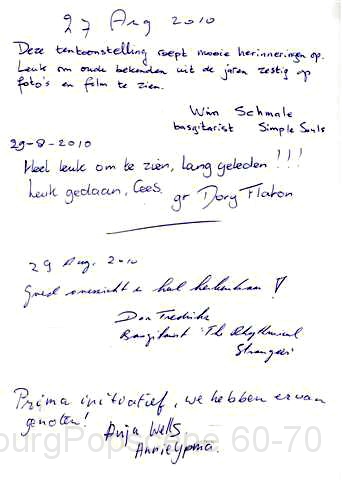 27 Aug 2010
Deze tentoonstelling roept mooie herinneringen op.
Leuk om oude bekenden uit de jaren zestig op
foto's en film te zien.
Wim Schmale
basgitarist Simple Souls
29-8-2010
Heel leuk om te zien, Lang geleden !!!
Leuk gedaan, Cees. gr Dory Flaton
29 Aug. 2010
Goed overzicht &
Don Fredriks
Basgitarist The Rhythmical
Strangers
Prima initiatief, we hebben ervan
genoten!
Anja Wells
Annie Ypma.
burgPopscene 60-70